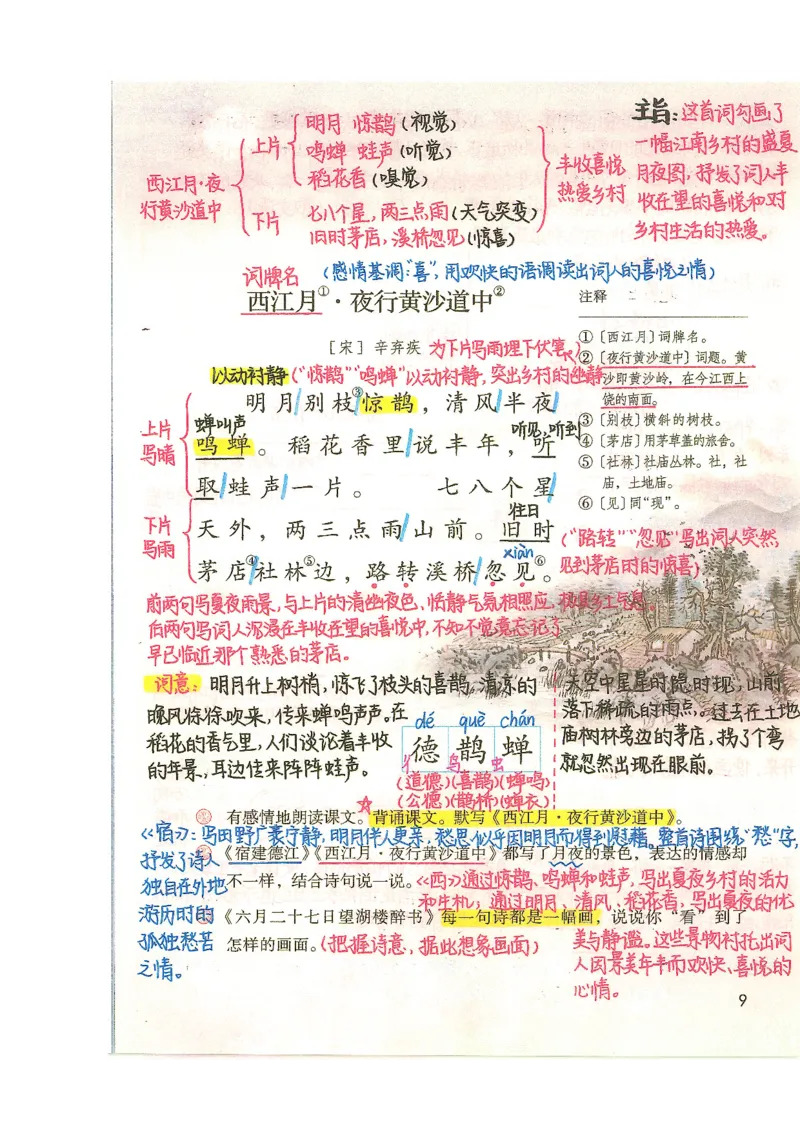 西江月·夜
行黄沙道中
上片
明月 惊鹊(视觉)
鸣蝉 蛙声(听觉)
稻花香(嗅觉)
下片
七八个星,两三点雨(天气突变)
旧时茅店,溪桥忽见(惊喜)
丰收喜悦
热爱乡村
主旨:这首词勾画了
一幅江南乡村的盛夏
月夜图,抒发了词人丰
收在望的喜悦和对
乡村生活的热爱。
词牌名
(感情基调:“喜”,用欢快的语调读出词人的喜悦之情)
西江月①·夜行黄沙道中②
[宋] 辛弃疾
为下片写雨埋下伏笔
以动衬静(“惊鹊”“鸣蝉”以动衬静,突出乡村的幽静
上片
写晴
明月/别枝③/惊鹊,清风/半夜/
蝉叫声
听见,听到
鸣蝉。稻花香里/说丰年,听
取/蛙声/一片。 七八个星/
下片
写雨
往日
天外,两三点雨/山前。旧时
xiàn
茅店④/社林⑤边,路转溪桥/忽见⑥。
注释
①〔西江月〕词牌名。
②〔夜行黄沙道中〕词题。黄
沙即黄沙岭,在今江西上
饶的南面。
③〔别枝〕横斜的树枝。
④〔茅店〕用茅草盖的旅舍。
⑤〔社林〕社庙丛林。社,社
庙,土地庙。
⑥〔见〕同“现”。
(“路转”“忽见”写出词人突然
见到茅店时的惊喜)
前两句写夏夜雨景,与上片的清幽夜色、恬静气氛相照应,极具乡土气息。
后两句写词人沉浸在丰收在望的喜悦中,不知不觉竟忘记了
早已临近那个熟悉的茅店。
词意:明月升上树梢,惊飞了枝头的喜鹊,清凉的
晚风徐徐吹来,传来蝉鸣声声。在
稻花的香气里,人们谈论着丰收
的年景,耳边传来阵阵蛙声。
天空中星星时隐时现,山前
落下稀疏的雨点。过去在土地
庙树林旁边的茅店,拐了个弯
就忽然出现在眼前。
dé què chán
德 鹊 蝉
彳 鸟 虫
(道德)(喜鹊)(蝉鸣)
(公德)(鹊桥)(蝉衣)
有感情地朗读课文。背诵课文。默写《西江月·夜行黄沙道中》。
《宿》:写因野旷寂宁静,明月伴人更亲,愁思似乎因明月而得到慰藉。整首诗围绕“愁”字,
抒发了诗人
独自在外地
游历时的
孤独愁苦
之情。
《宿建德江》《西江月·夜行黄沙道中》都写了月夜的景色,表达的情感却
不一样,结合诗句说一说。
《西》通过惊鹊、鸣蝉和蛙声,写出夏夜乡村的活力
和生机;通过明月、清风、稻花香,写出夏夜的优
美与静谧。这些景物衬托出词
人因景美年丰而欢快、喜悦的
心情。
《六月二十七日望湖楼醉书》每一句诗都是一幅画,说说你“看”到了
怎样的画面。(把握诗意,据此想象画面)
9